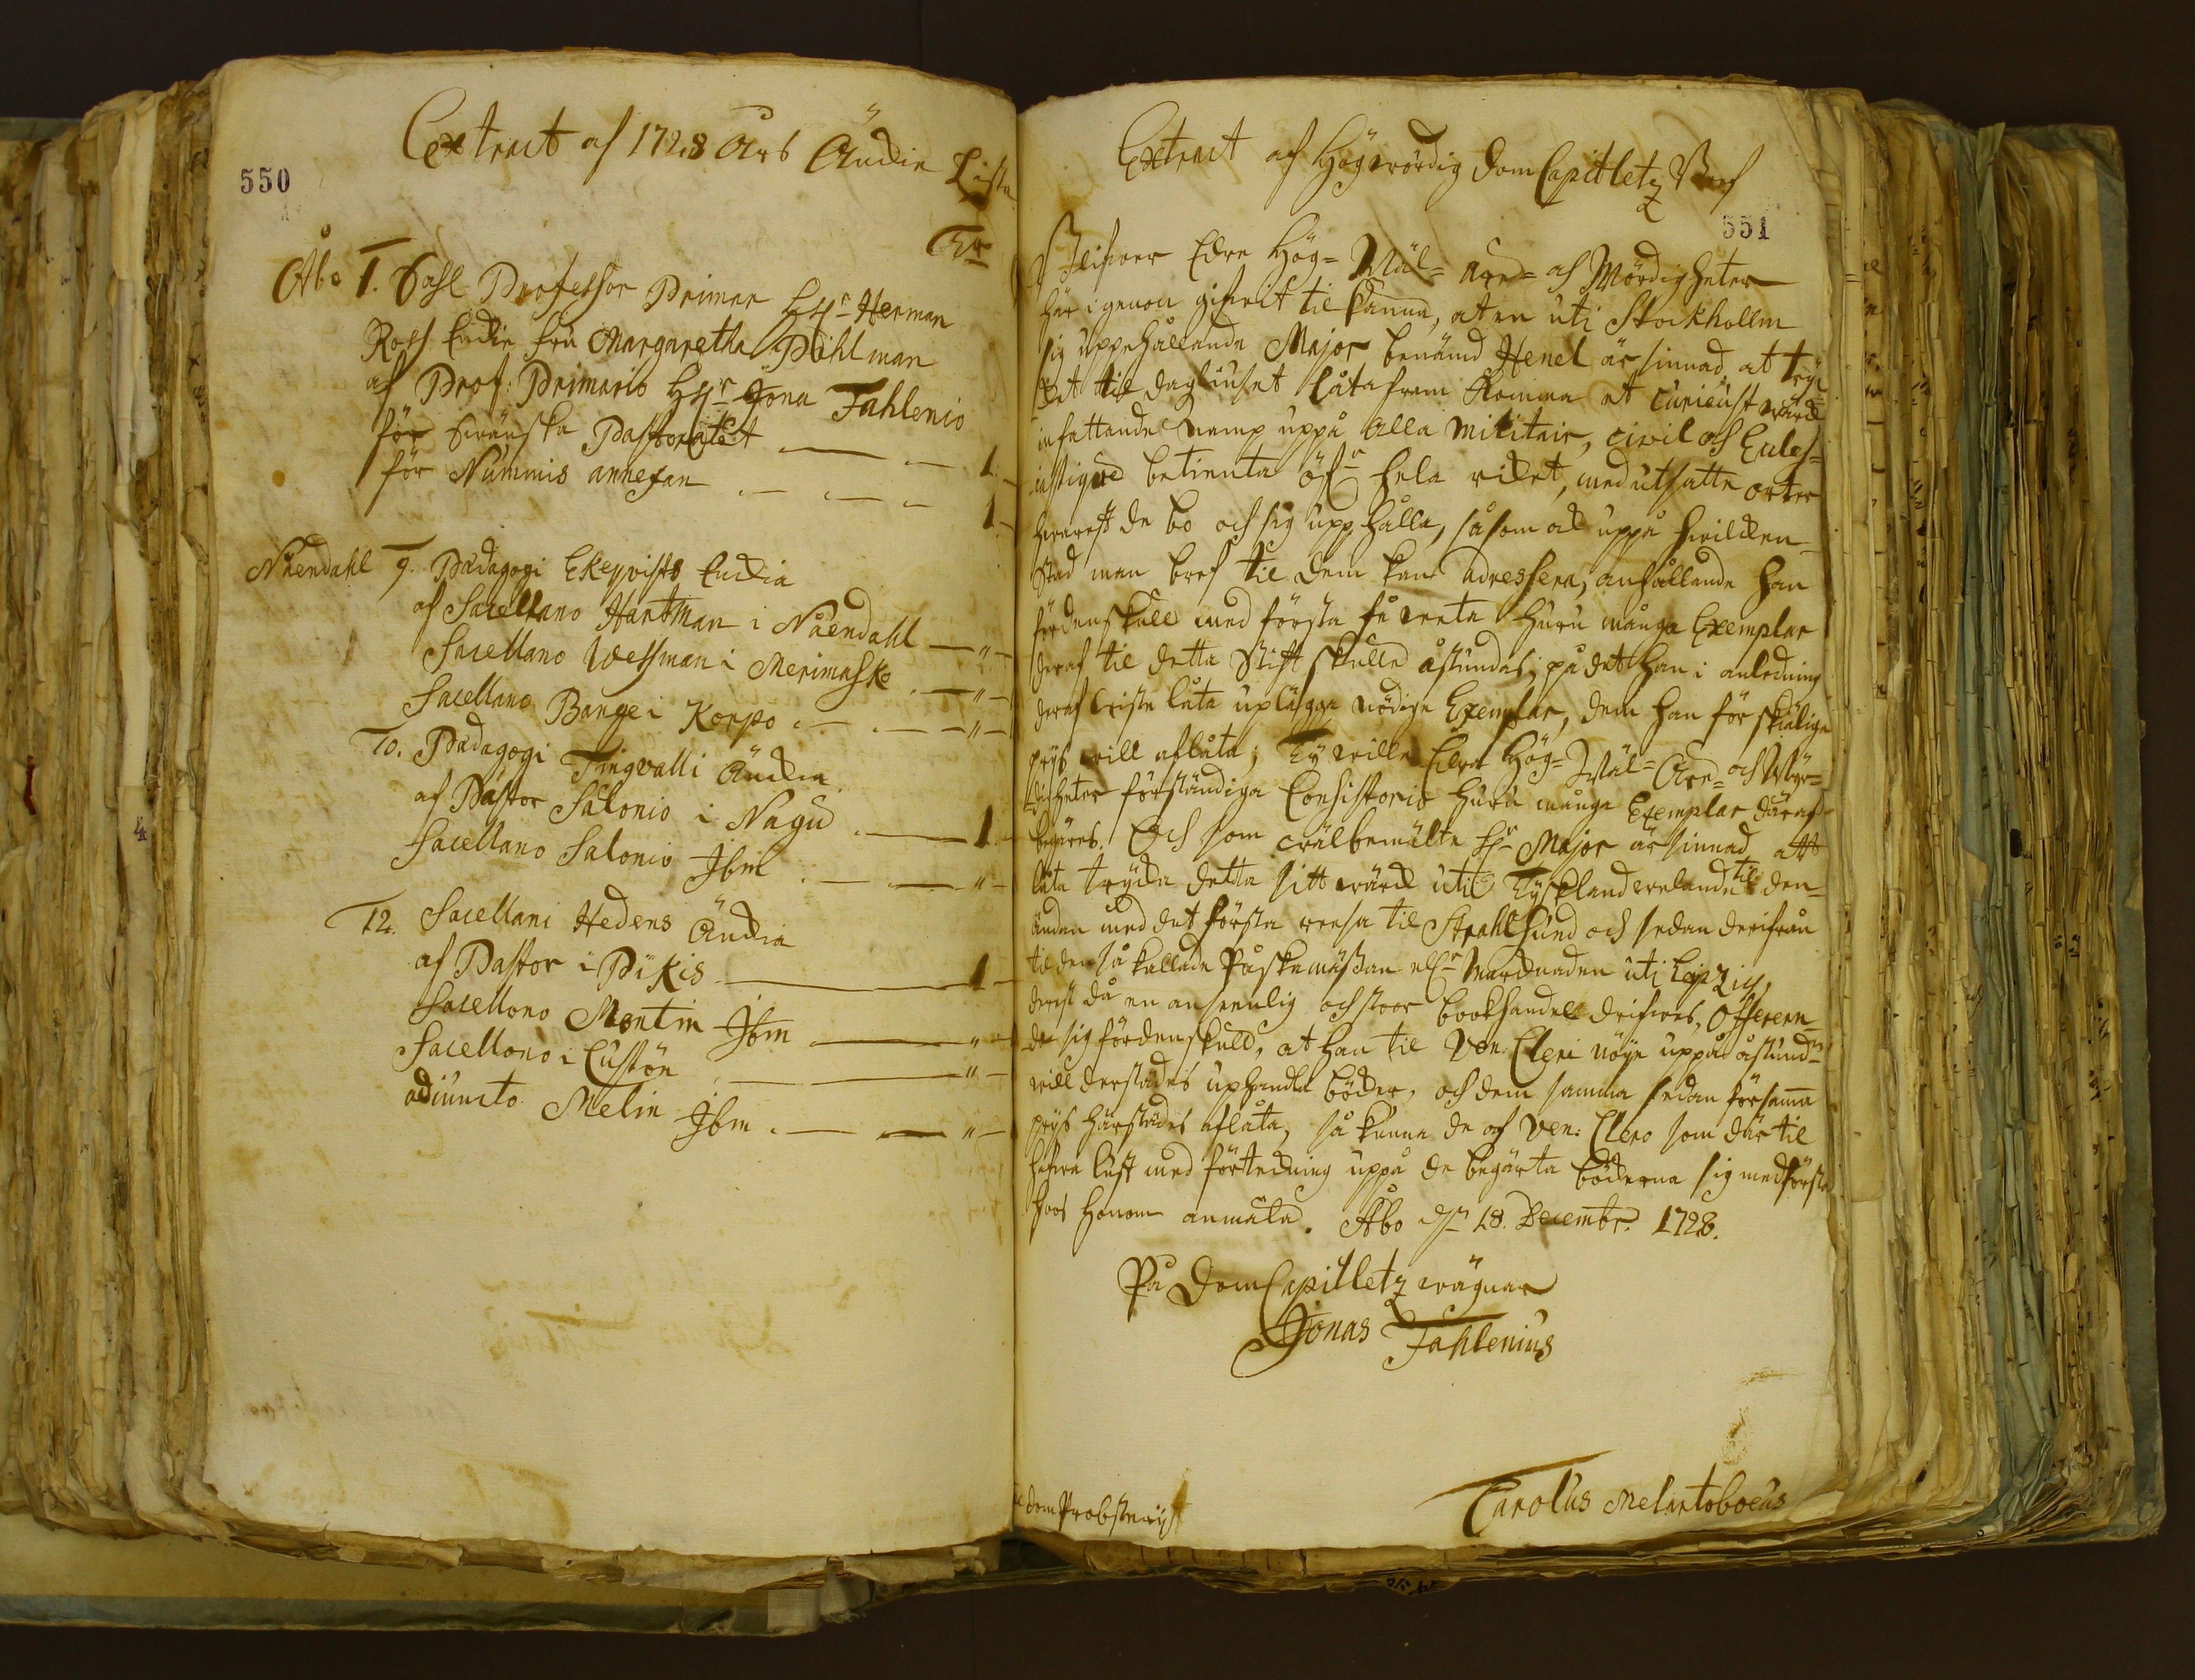 550
Extract af 1728 Års Änckie Lista
Tr
Åbo 1. Sahl Professor Primar H:r Herman
Ross Enckie fru Margaretha Pihlman
af Prof: Primario H:r Jona Fahlenio
för Swänska Pastoratet 1.
för Nummis annexan 1.
Nåendahl 9. Pædagogi Ekeqvists Enckia
af Sacellano Hartman i Nåendahl "
Sacellano Wessman i Merimasko "
Sacellano Bange i Korpo "
10. Pædagogi Tingvalli Änckia
af Pastor Salonio i Nagu 1
Sacellano Salonio Ibm "
12. Sacellani Hedens Änckia
af Pastor i Pikis 1
Sacellano Montin Ibm "
Sacellano i Custön "
adiuncto Melin Ibm "
Extract af Högwördig DomCapitletz Bref
551
Blifwer Edre Hög- Wäl- Äre- och Wördigheter
här igenom gifwit til känna, at en uti Stockhollm
sig uppehållande Major benämd Henel är sinnad, at tryc-
ket til dagliuset låta fram komma et curieust wärck
infattande Namp uppå alla Militair, civil och Eccles-
iastique betienta öf:r hela riket, med utsatte orter
hwarest de bo och sig upphålla, såsom ock uppå hwilcken
stad man bref til dem kan adressera, anhållande han
fördenskull med första få weta huru många Exemplar
deraf til detta Stift skulle åstundas, på det han i anledning
deraf wiste låta uplägga nödige Exemplar, dem han för skiälige
prijs will aflåta; Ty wille Edra Hög- Wäl- Äre- och Wör-
digheter förständiga Consistorio huru många Exemplar däraf
begäres. Och som wälbemälte H:r Major är sinnad att
låta trycka detta sitt wärck uti Tyskland welandes til den
ändan med det första reesa til Strahlsund och sedan derifrån
til den så kallade Påskemässan ell:r Marcknaden uti Leipzig,
derest då en ansenlig och stoor bookhandel drifwes, Offereran-
de sig fördenskuld, at han til Ven: Cleri nöye uppå åstund:n
will derstädes uphandla böcker, och dem samma sedan för samma
prijs härstädes aflåta, så kunna de af Ven: Clero som där til
hafwa lust med förteckning uppå de begärta böckerna sig med första
hoos honom anmäla. Åbo d: 18. Decembr. 1728.
På DomCapitletz wägnar
Jonas Fahlenius
DomProbsterij
Carolus Melartoboeus